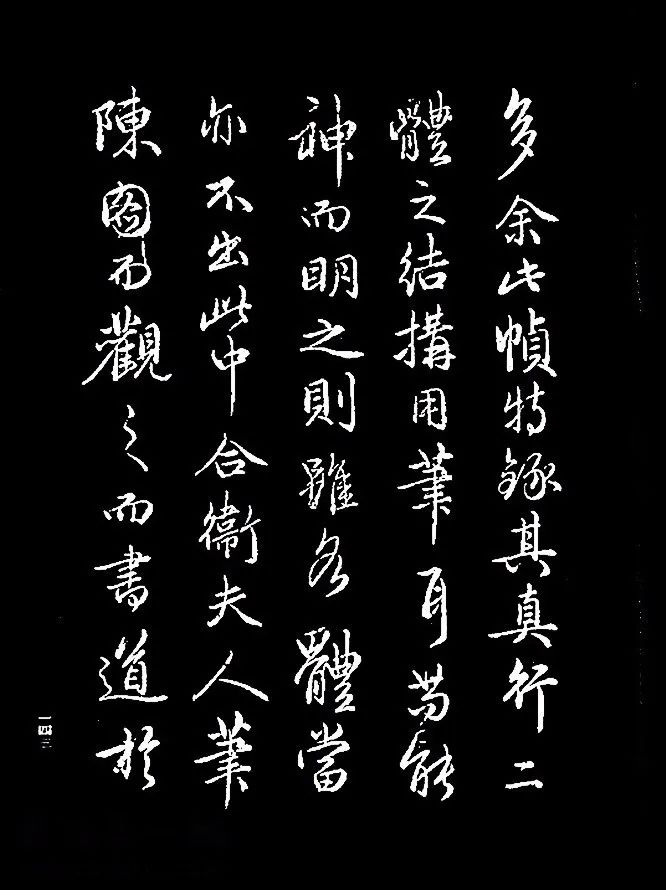 多余此幀特録其真行二
體之結搆用筆耳苟能
神而明之則雖各體當
亦不出此中合衞夫人筆
陳圖而觀之而書道於
一四三